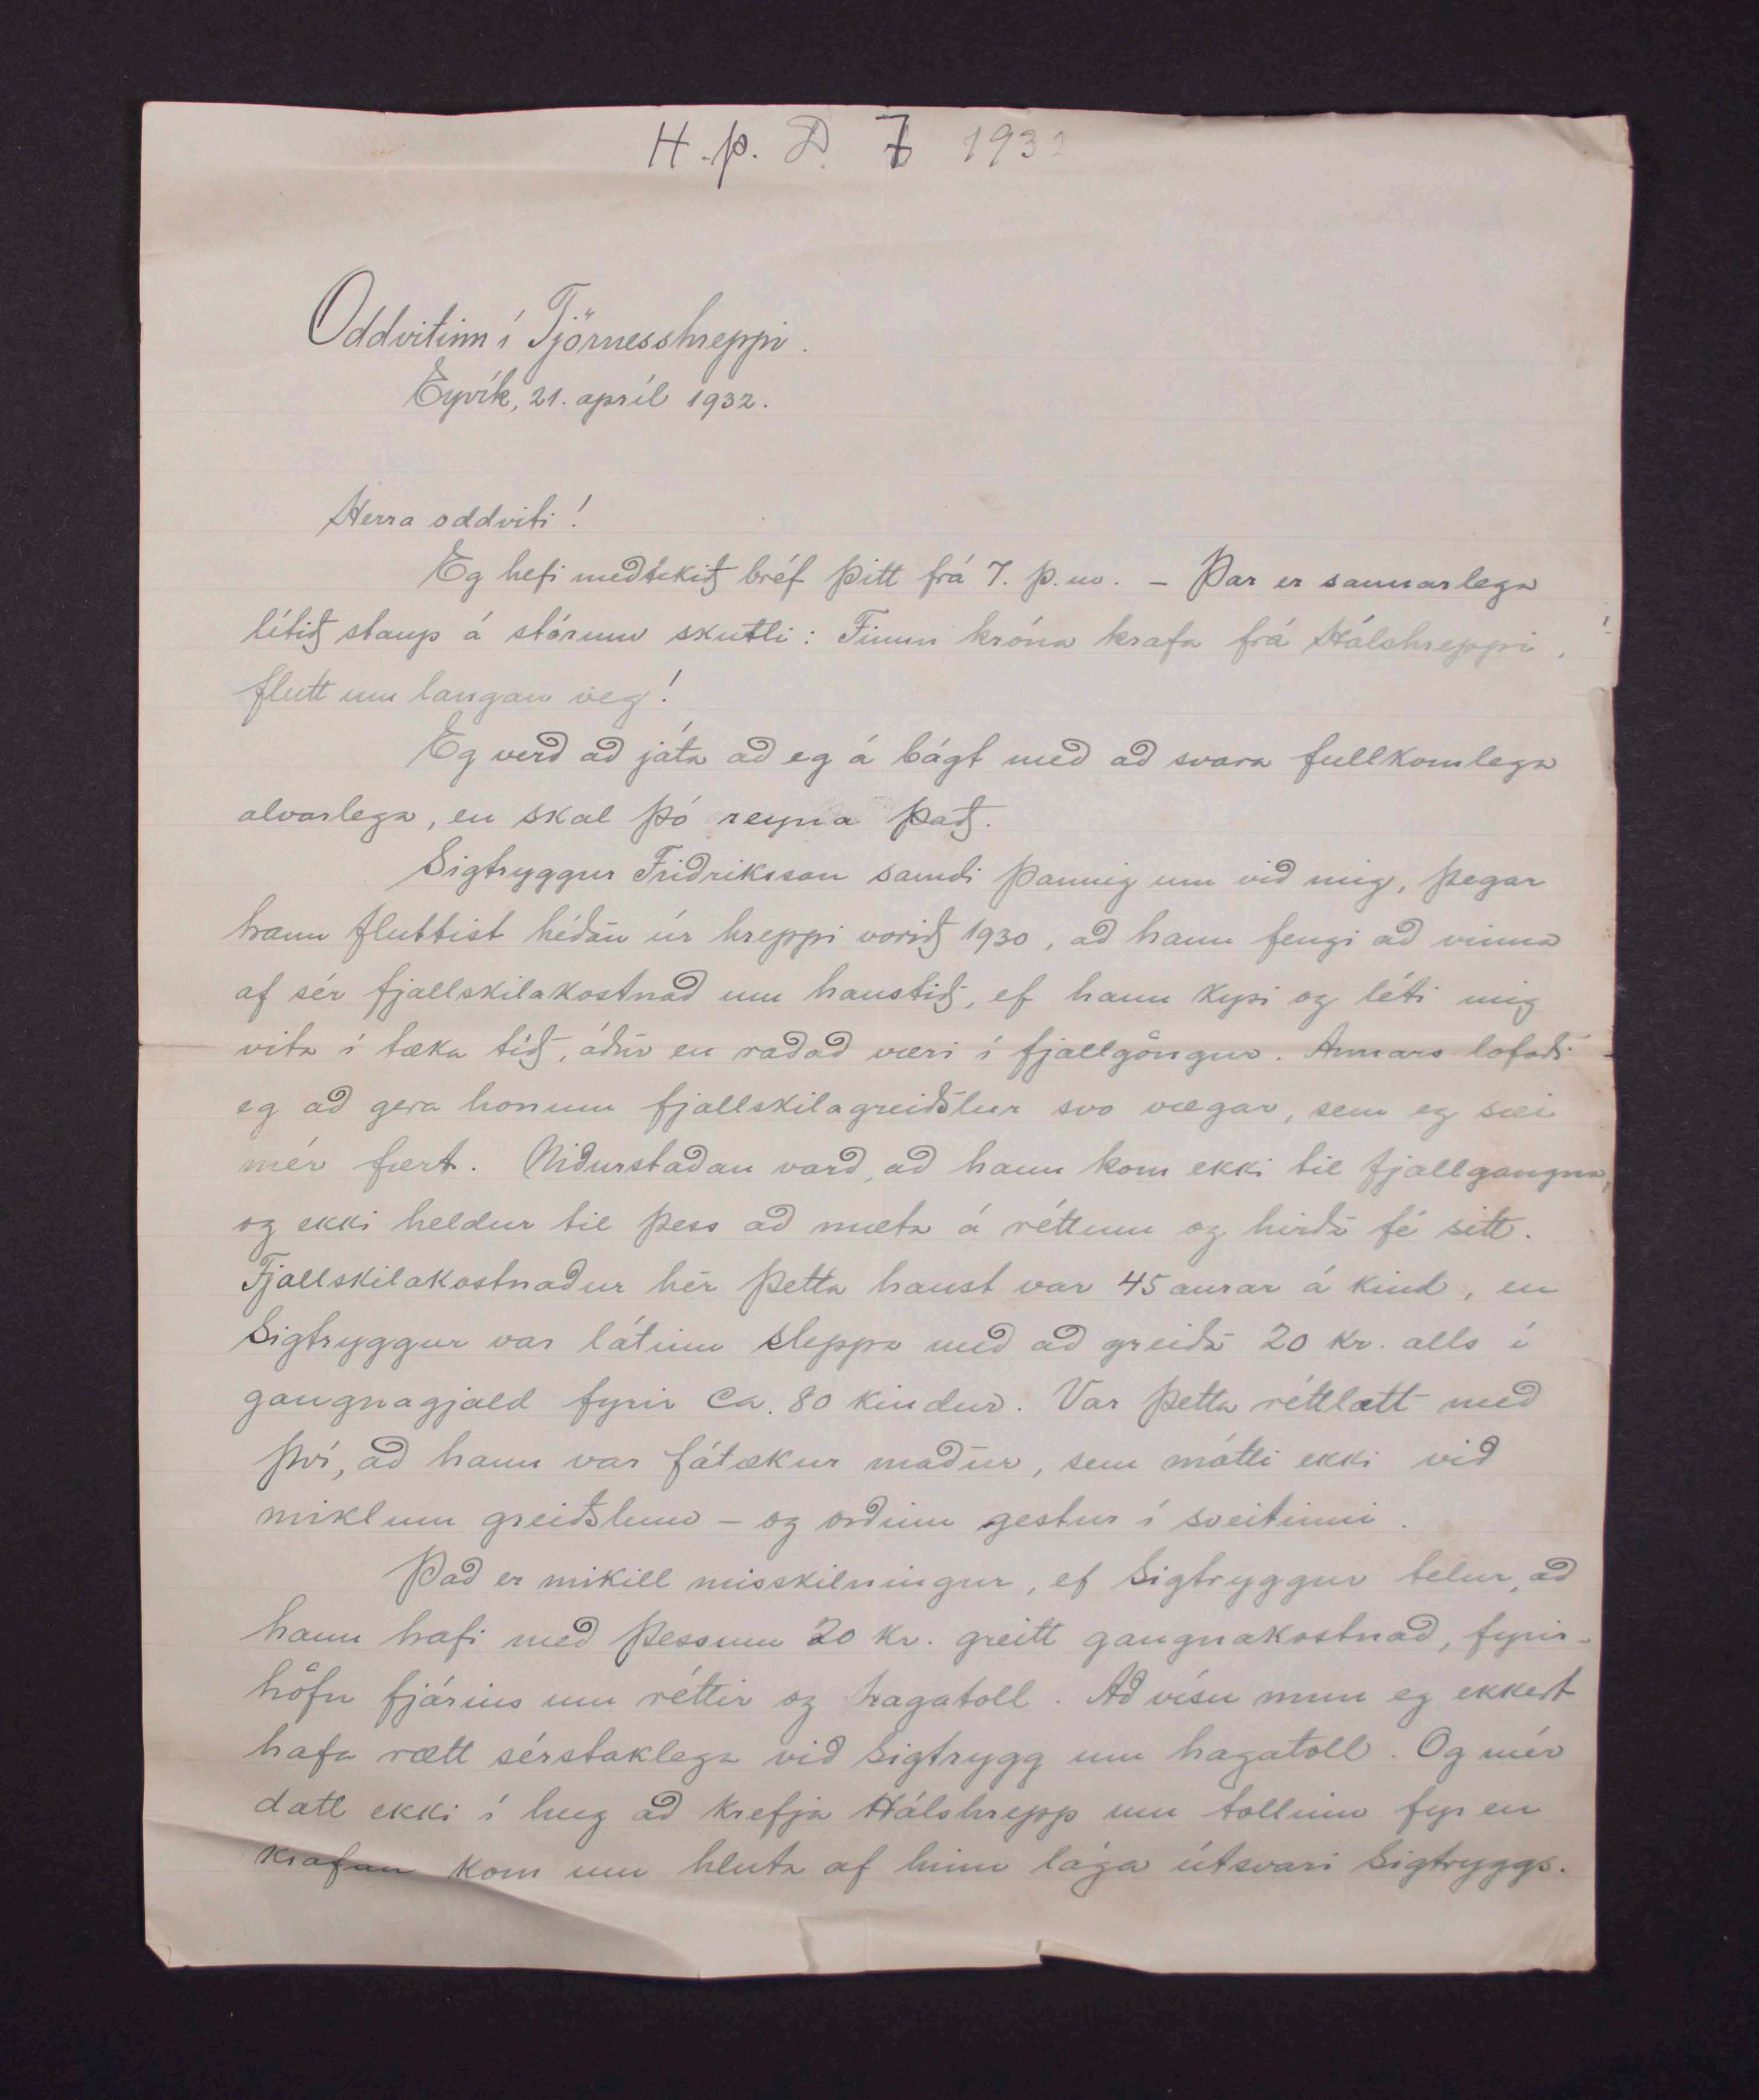 H.þ. D. 7 1932
Oddvitinn í Tjörnesshreppi.
Eyvík, 21. apríl 1932.
Herra oddviti!
Eg hefi meðtekið bréf þitt frá 7. þ.m. – Þar er sannarlega
lítið staup á stórum skutli: Fimm króna krafa frá Hálshreppi,
flutt um langan veg!
Eg verð að játa að eg á bágt með að svara fullkomlega
alvarlega, en skal þó reyna það.
Sigtryggur Friðriksson samdi þannig um við mig, þegar
hann fluttist héðan úr hreppi vorið 1930, að hann fengi að vinna
af sér fjallskilakostnað um haustið, ef hann kysi og léti mig
vita í tæka tíð, áður en raðað væri í fjallgöngur. Annars lofaði
eg að gera honum fjallskilagreiðslur svo vægar, sem eg sæi
mér fært. Niðurstaðan varð, að hann kom ekki til fjallgangna,
og ekki heldur til þess að mæta á réttum og hirða fé sitt.
Fjallskilakostnaður hér þetta haust var 45 aurar á kind, en
Sigtryggur var látinn sleppa með að greiða 20 kr. alls í
gangnagjald fyrir ca. 80 kindur. Var þetta réttlætt með
því, að hann var fátækur maður, sem mátti ekki við
miklum greiðslum – og orðinn gestur í sveitinni.
Það er mikill misskilningur, ef Sigtryggur telur, að
hann hafi með þessum 20 kr. greitt gangnakostnað, fyrir-
höfn fjárins um réttir og hagatoll. Að vísu mun eg ekkert
hafa rætt sérstaklega við Sigtrygg um hagatoll. Og mér
datt ekki í hug að krefja Hálshrepp um tollinn fyr en
krafan kom um hluta af hinu lága útsvari Sigtryggs.